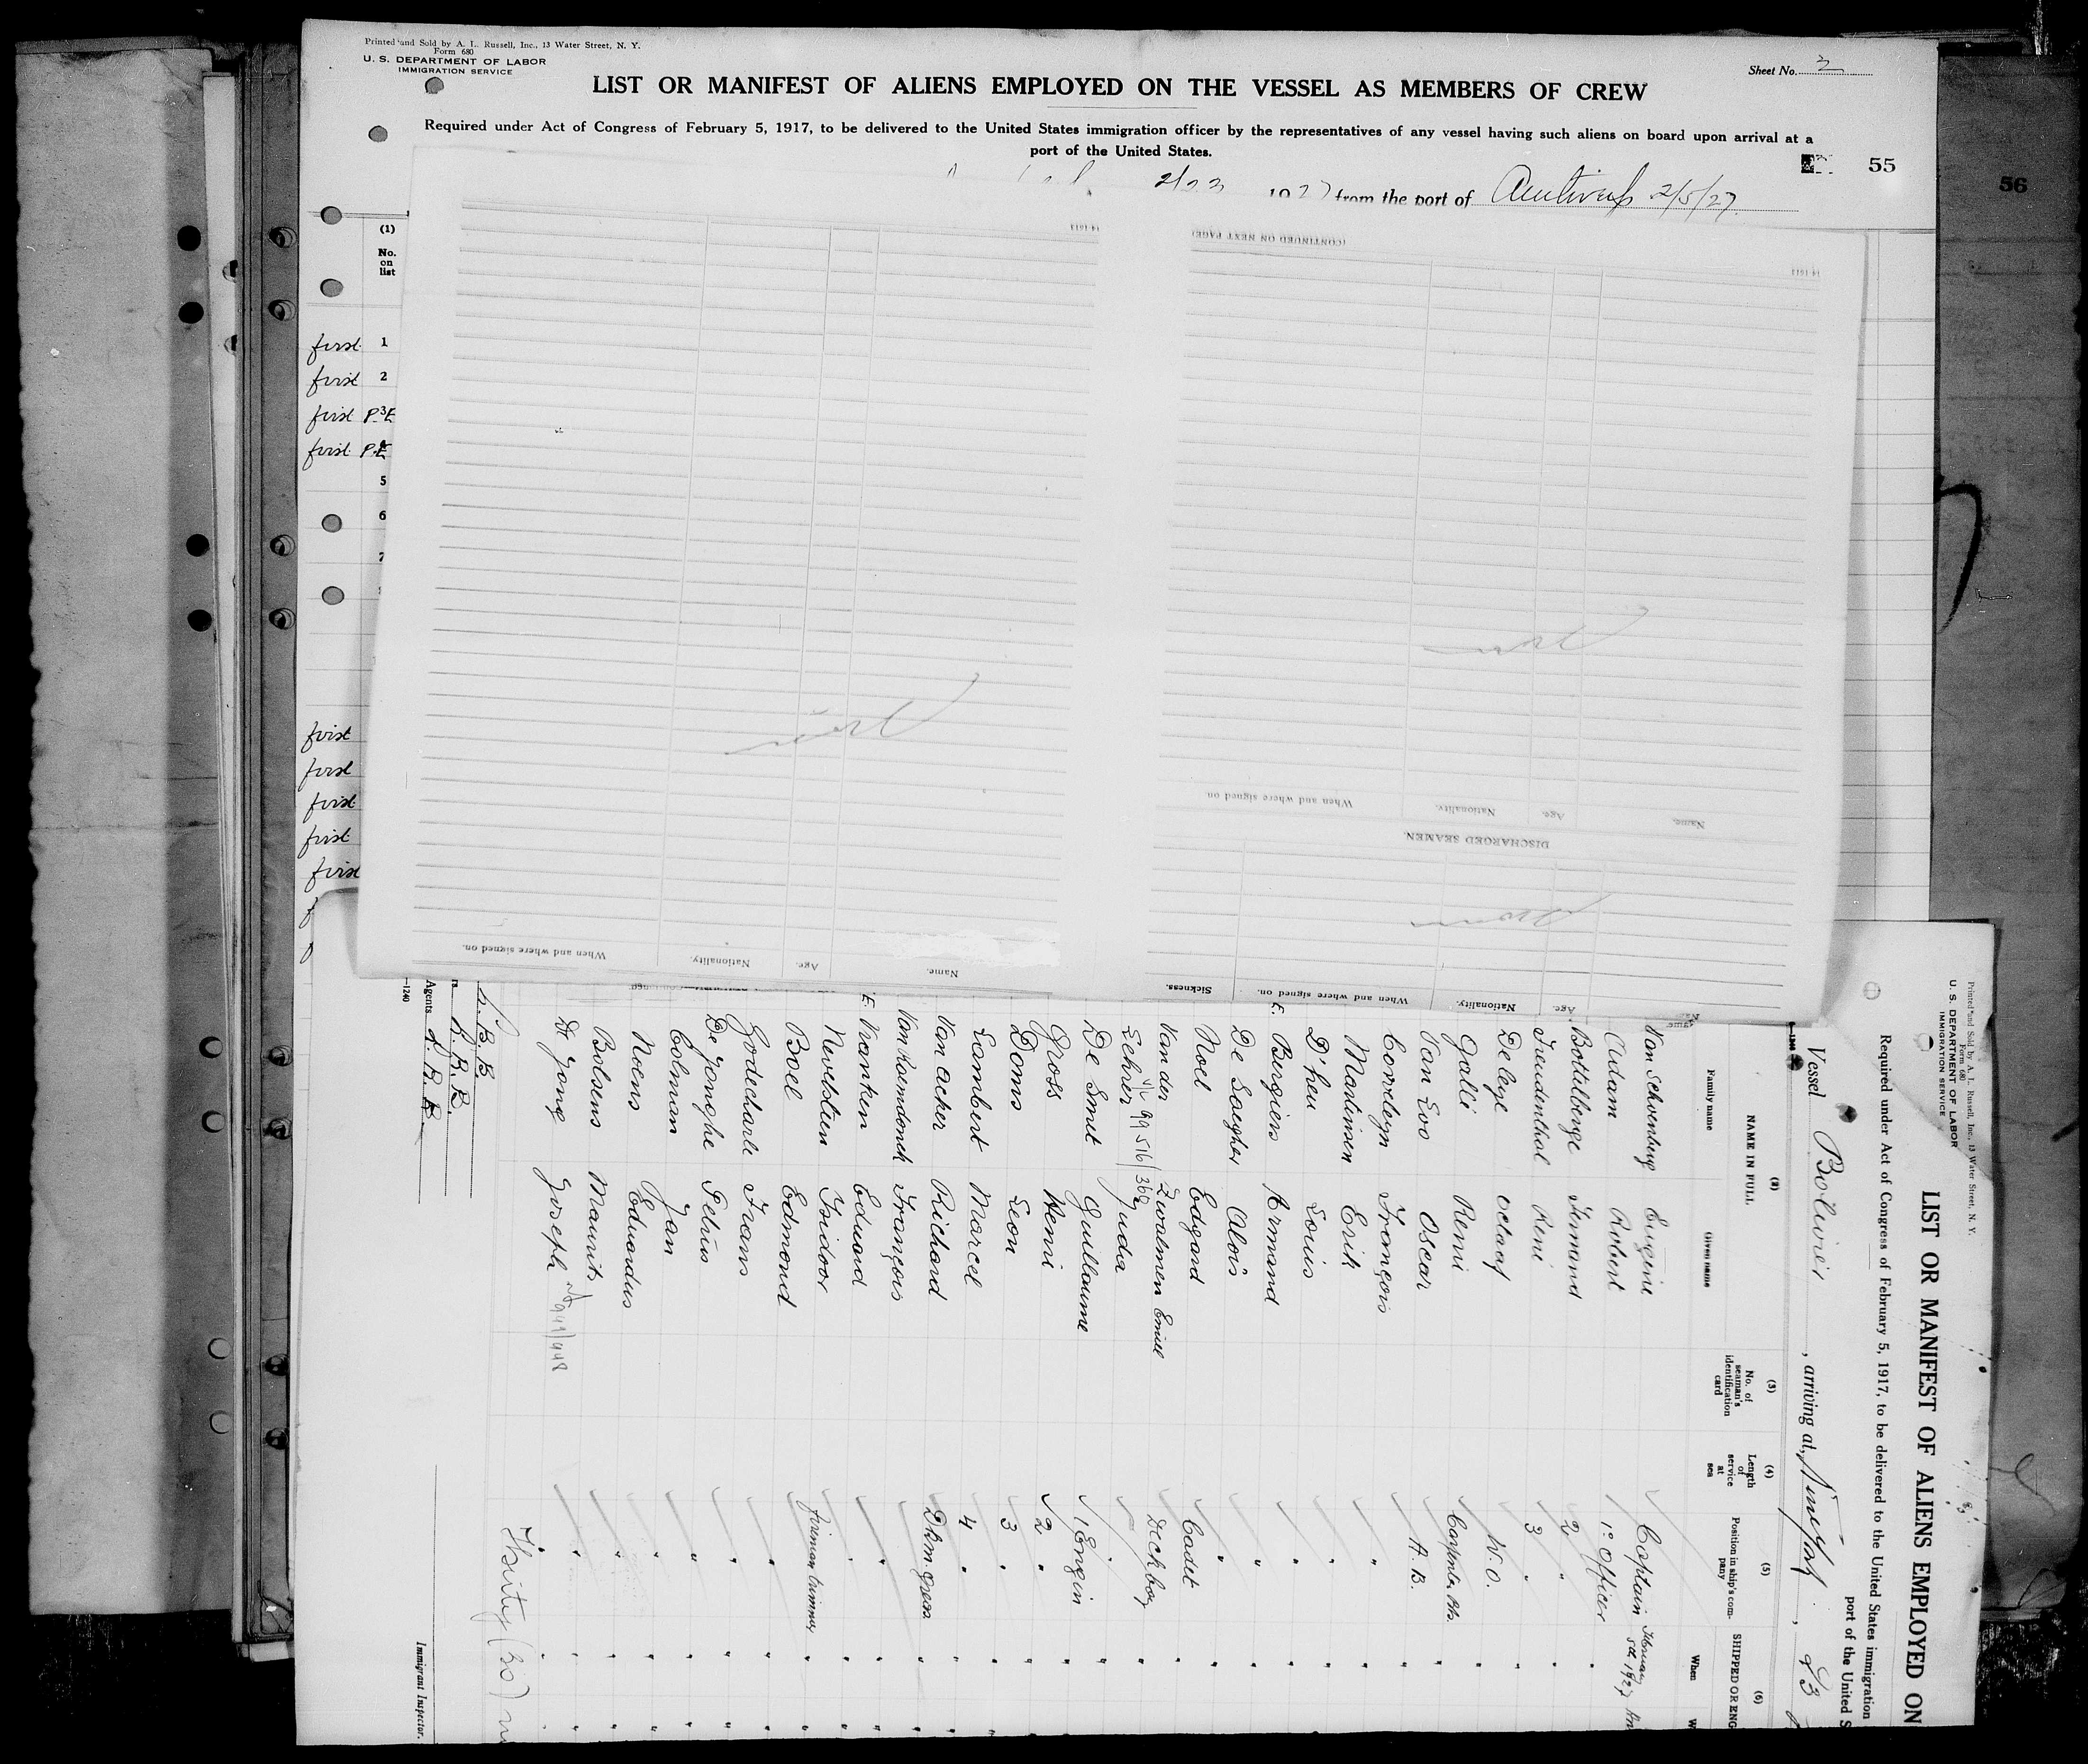 Printed and Sold by A. L. Russell, Inc., 13 Water Street, N. Y.
Form 680
U. S. DEPARTMENT OF LABOR
IMMIGRATION SERVICE
Sheet No. 2
LIST OR MANIFEST OF ALIENS EMPLOYED ON THE VESSEL AS MEMBERS OF CREW
Required under Act of Congress of February 5, 1917, to be delivered to the United States immigration officer by the representatives of any vessel having such aliens on board upon arrival at a
port of the United States.
55
56
1927 from the port of Antwerp 2/5/27
(1)
No.
on
list
first 1
first 2
first P.E 3
first P.E
5
6
7
first
first
first
first
first
14-1613
(CONTINUED ON NEXT PAGE)
14-1613
Name. Age. Nationality. When and where signed on.
DISCHARGED SEAMEN.
Name. Age. Nationality. When and where signed on.
Age. Nationality. When and where signed on. Sickness.
Printed and Sold by A. L. Russell, Inc., 13 Water Street, N. Y.
Form 680
U. S. DEPARTMENT OF LABOR
IMMIGRATION SERVICE
LIST OR MANIFEST OF ALIENS EMPLOYED ON
Required under Act of Congress of February 5, 1917, to be delivered to the United States immigration
port of the United S
Vessel Bolivier, arriving at New York, 23
(2) (3) (4) (5) (6)
NAME IN FULL
Family name Given name
No. of seaman's identification card
Length of service at sea
Position in ship's company
SHIPPED OR ENG
When
Van Schoenburg Eugène Captain February 5th 1927
Adam Robert 1° Officer "
Bottelberge Fernand 2 " "
Freudenthal René 3 " "
Deleye Octaaf W.O. "
Galli Remi Carpenter "
Van Loo Oscar A.B. "
Correleyn François "
Martinsen Erik " "
D'heu Louis " "
E. Bergiers Armand " "
De Saegher Aloïs " "
Noel Edgard Cadet "
Van der Zwalmen Emiel Deckboy "
Schrer 99516/368 Juda "
De Smet Guillaume 1 Engin "
Gross Henri 2 " "
Doms Leon 3 " "
Lambert Marcel 4 " "
Van acker Richard Dkm. greas. "
Van Roendonck François " "
E. Vranken Eduard " "
Nevelstien Isidoor fireman trimmer "
Boel Edmond "
Godecharle Frans " "
De Jonghe Petrus " "
Colman Jan " "
Noens Eduardus " "
Bolsens Maurits " "
De Jong Joseph 99/448 " "
Thirty (30)
B. B. B.
Agents B. B. B.
—1240
Immigrant Inspector.